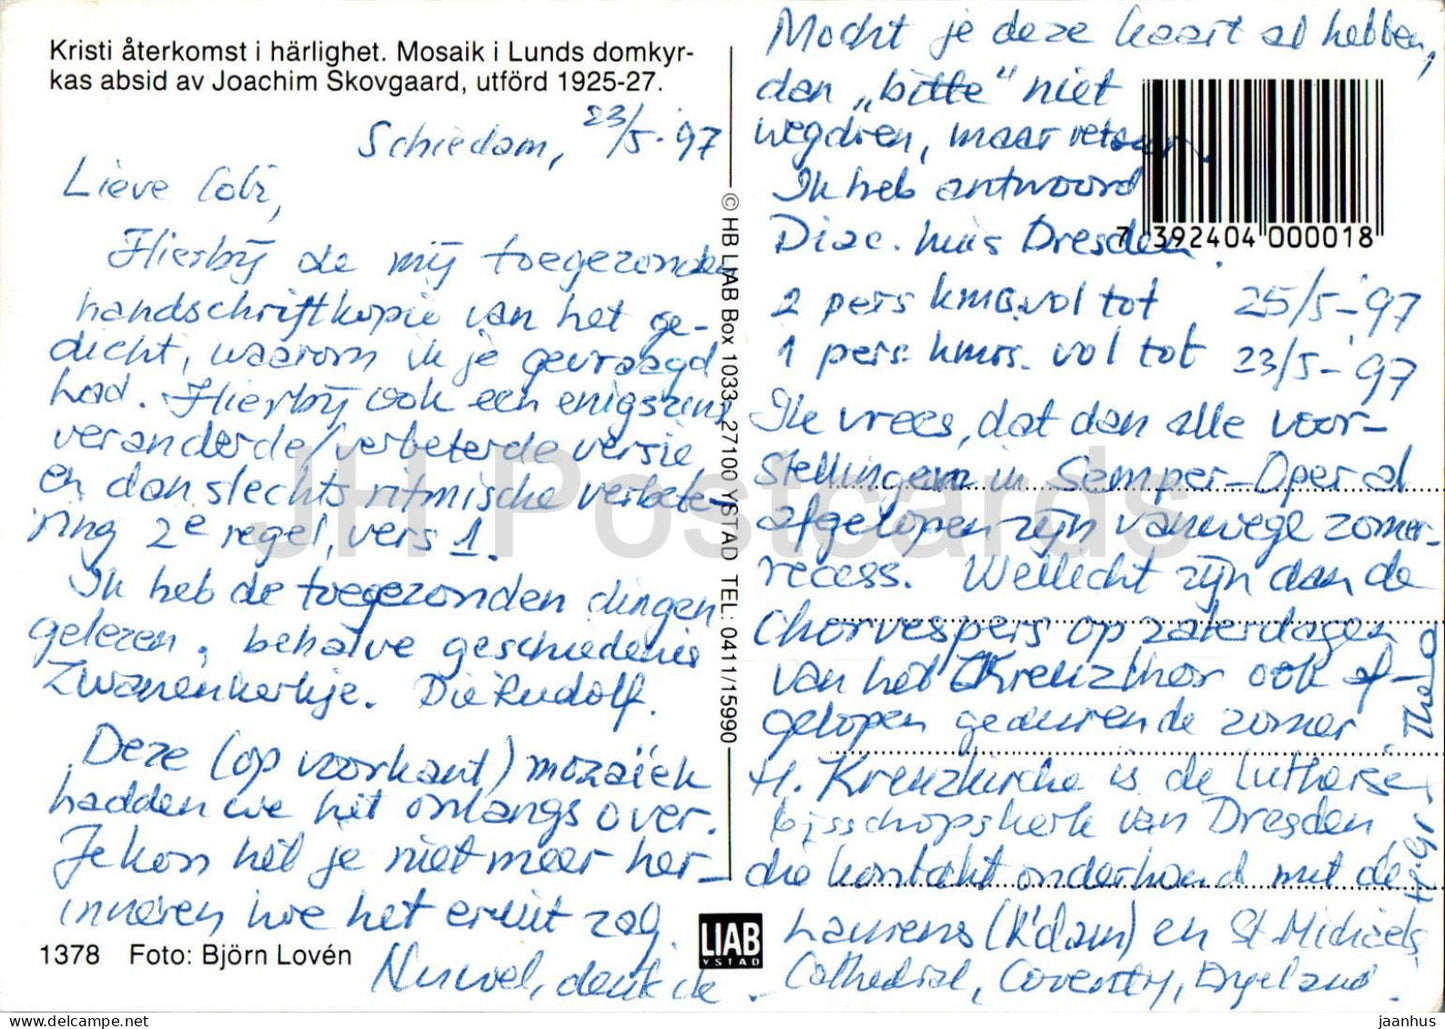 Kristi återkomst i härlighet. Mosaik i Lunds domkyr-
kas absid av Joachim Skovgaard, utförd 1925-27.
Schiedam, 23/5-'97
Lieve Cobi,
Hierbij de mij toegezonden
handschriftkopie van het ge-
dicht, waarom ik je gevraagd
had. Hierbij ook een enigszins
veranderde/verbeterde versie,
en dan slechts ritmische verbete-
ring 2e regel, vers 1.
Ik heb de toegezonden dingen
gelezen, behalve geschiedenis
Zwanenkerkje. Die Rudolf.
Deze (op voorkant) mozaïek
hadden we het onlangs over.
Je kon hèt je niet meer her-
inneren hoe het eruit zag.
Nuwel, denk ik.
1378 Foto: Björn Lovén
© HB LIAB Box 1033, 27100 YSTAD TEL: 0411/15990
LIAB
YSTAD
Mocht je deze kaart al hebben,
dan „bitte" niet
wegdoen, maar retour.
Ik heb antwoord
Diac. huis Dresden
2 pers kmrs. vol tot 25/5-'97
1 pers. kmrs. vol tot 23/5-'97
Ik vrees, dat dan alle voor-
stellingen in Semper-Oper al
afgelopen zijn vanwege zomer-
recess. Wellicht zijn dan de
Chorvespers op zaterdagen
van het Kreuzchor ook af-
gelopen gedurende zomer.
H. Kreuzkirche is de Lutherse
bisschopskerk van Dresden
die kontakt onderhoud met de
Laurens (R'dam) en St. Michaels
Cathedral, Coventry, Engeland.
7 392404 000018
JH Postcards
jaanhus